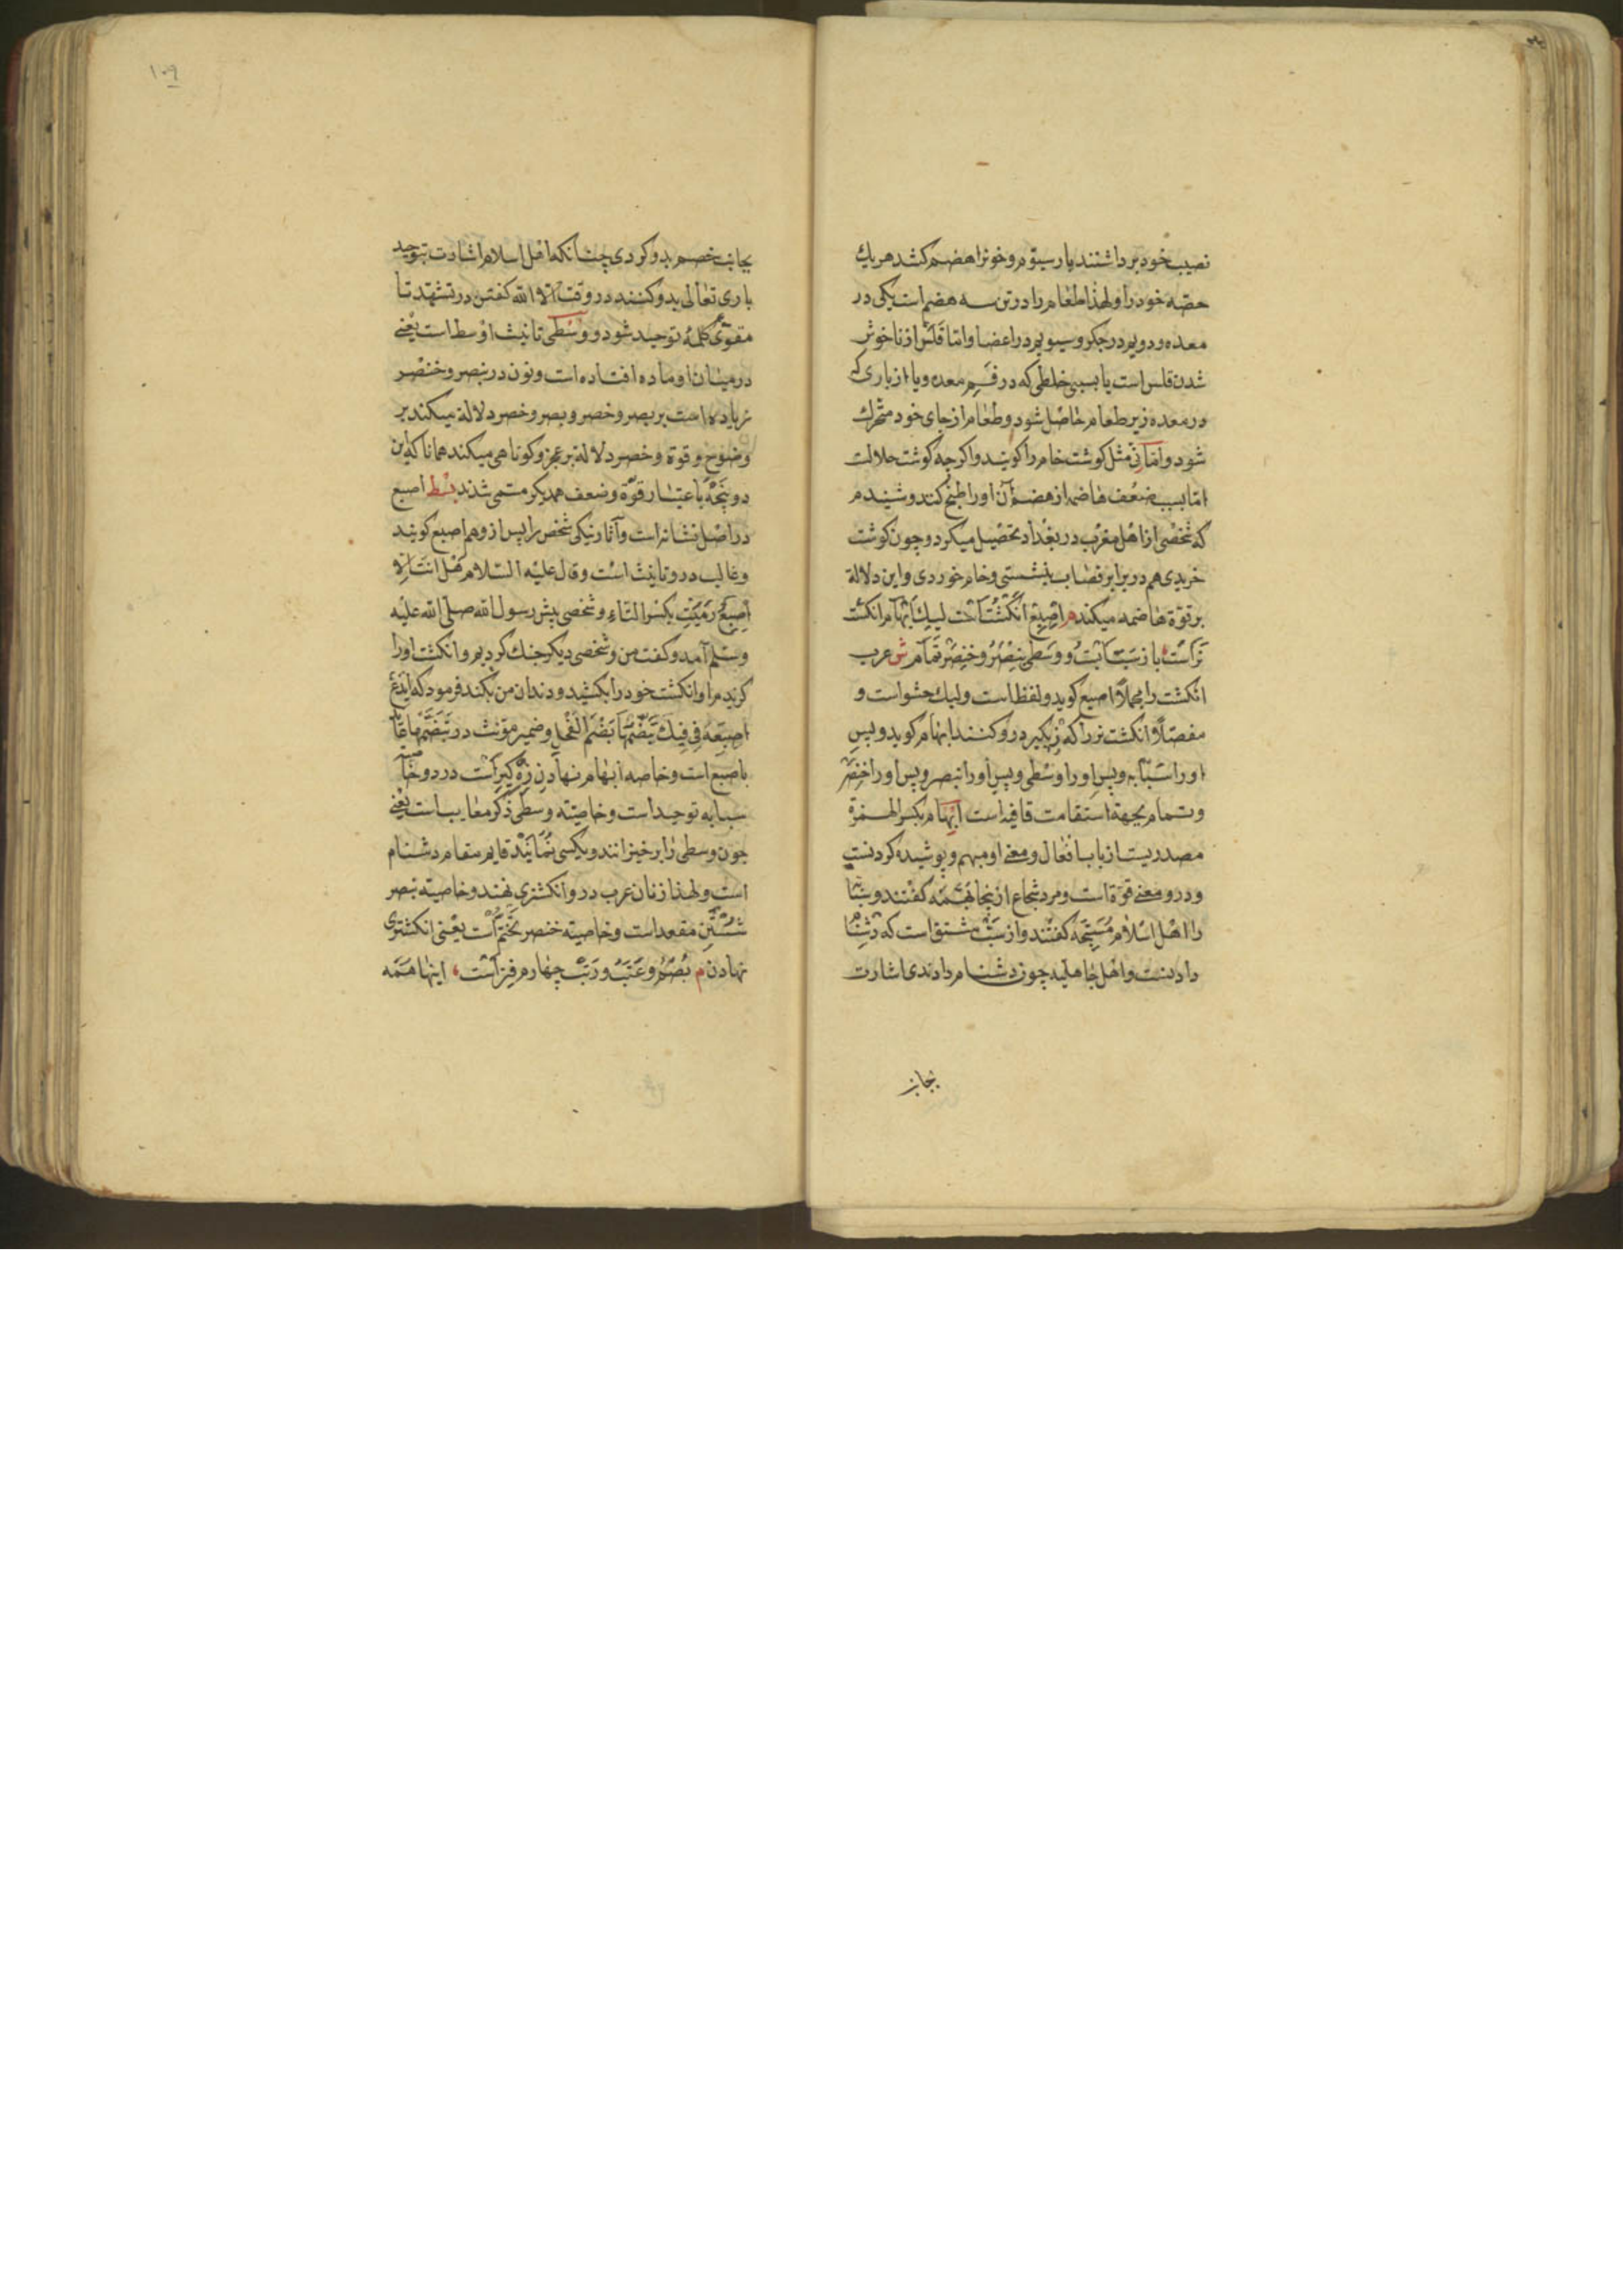 نصیب خود برداشتند بار سیوم و خونرا هضم کنند هریك
حصّه خود را و لهذا طعام را در تن سه هضم است یکی در
معده و دویم در جکر و سیویم در اعضا و امّا قلس از ناخوش
شدن قلس است یا بسببی خلطی که در فم معده و یا از باری که
در معده زیر طعام حاصل شود و طعام از جای خود متحرك
شود و امّا نیّ مثل کوشت خام را کویند و اکرجه کوشت حلالت
امّا بسبب ضعف هاضمه از هضم آن اورا طبخ کند و شنیدم
که شخصی از اهل مغرب در بغداد تحصیل میکرد و جون کوشت
خریدی هم در برابر قصاب بنشستی و خام خوردی و این دلالة
بر قوّة هاضمه میکند م اصبع انکشت است لیك ابهام انکشت
نراست باز سبّابت و وسطی بنصر و خنصر تمام ش عرب
انکشت را مجملاً اصبع کوید و لفظ است ولیك حشو است و
مفصّلاً انکشت نر را که زیکیر درو کنند ابهام کوید و پس
اورا سبّابه و پس اورا وسطی و پس اورا بنصر و پس اورا خنصر
و تمام بجهة استقامت قافیه است ابهام بکسر الهمزة
مصدریست از باب افعال و معنی او مبهم و پوشیده کردنست
و درو معنی قوّة است و مرد شجاع ازینجا بهمه کفتند و سبّا
را اهل اسلام مسبّحه کفتند و از سبّ مشتق است که دشنا
دادنست و اهل جاهلیه چون دشنام دادندی اشارت
بجانب
١٠٩
بجانب خصم بدو کردی چنانکه اهل اسلام اشارت بتوحید
باری تعالی بدو کنند در وقت الا الله کفتن در تشهّد تا
مقوّی کلمهٔ توحید شود و وسطی تانیث اوسط است یعنی
در میان او ماده افتاده است و نون در بنصر و خنصر
زیاده است بر بصر و خصر و بصر و خصر دلالة میکند بر
وضوح و قوة و خصر دلالة بر عجز و کوتاهی میکند همانا که این
دو پنجه باعتبار قوّة و ضعف همدیکر مسمّی شدند بسط اصبع
در اصل نشانه است و آثار نیکی شخص را پس ازو هم اصبع کویند
و غالب درو تانیث است و قال علیه السّلام هل انت الا
اصبع رمیت بکسر التاء و شخصی پیش رسول الله صلّی الله علیه
و سلّم آمد و کفت من و شخصی دیکر جنك کردیم و انکشت اورا
کزیدم او انکشت خود را بکشید و دندان من بکند فرمود که ایدع
اصبعه فی فیك تقضمها تقضم الفحل و ضمیر مؤنث در تقضمها عاید
باصبع است و خاصه ابهام نهادن زه کیر است درو و خاصیّه
سبابه توحید است و خاصیّه وسطی ذکر معایب است یعنی
جون وسطی را برخیزانند و بکسی نمایند قایم مقام دشنام
است و لهذا زنان عرب درو انکشتری نهند و خاصیّة بنصر
شستن مقعد است و خاصیّه خنصر تختّم است یعنی انکشتری
نهادن م بصم و عتب و رتب چهارم فتر است اینها همه